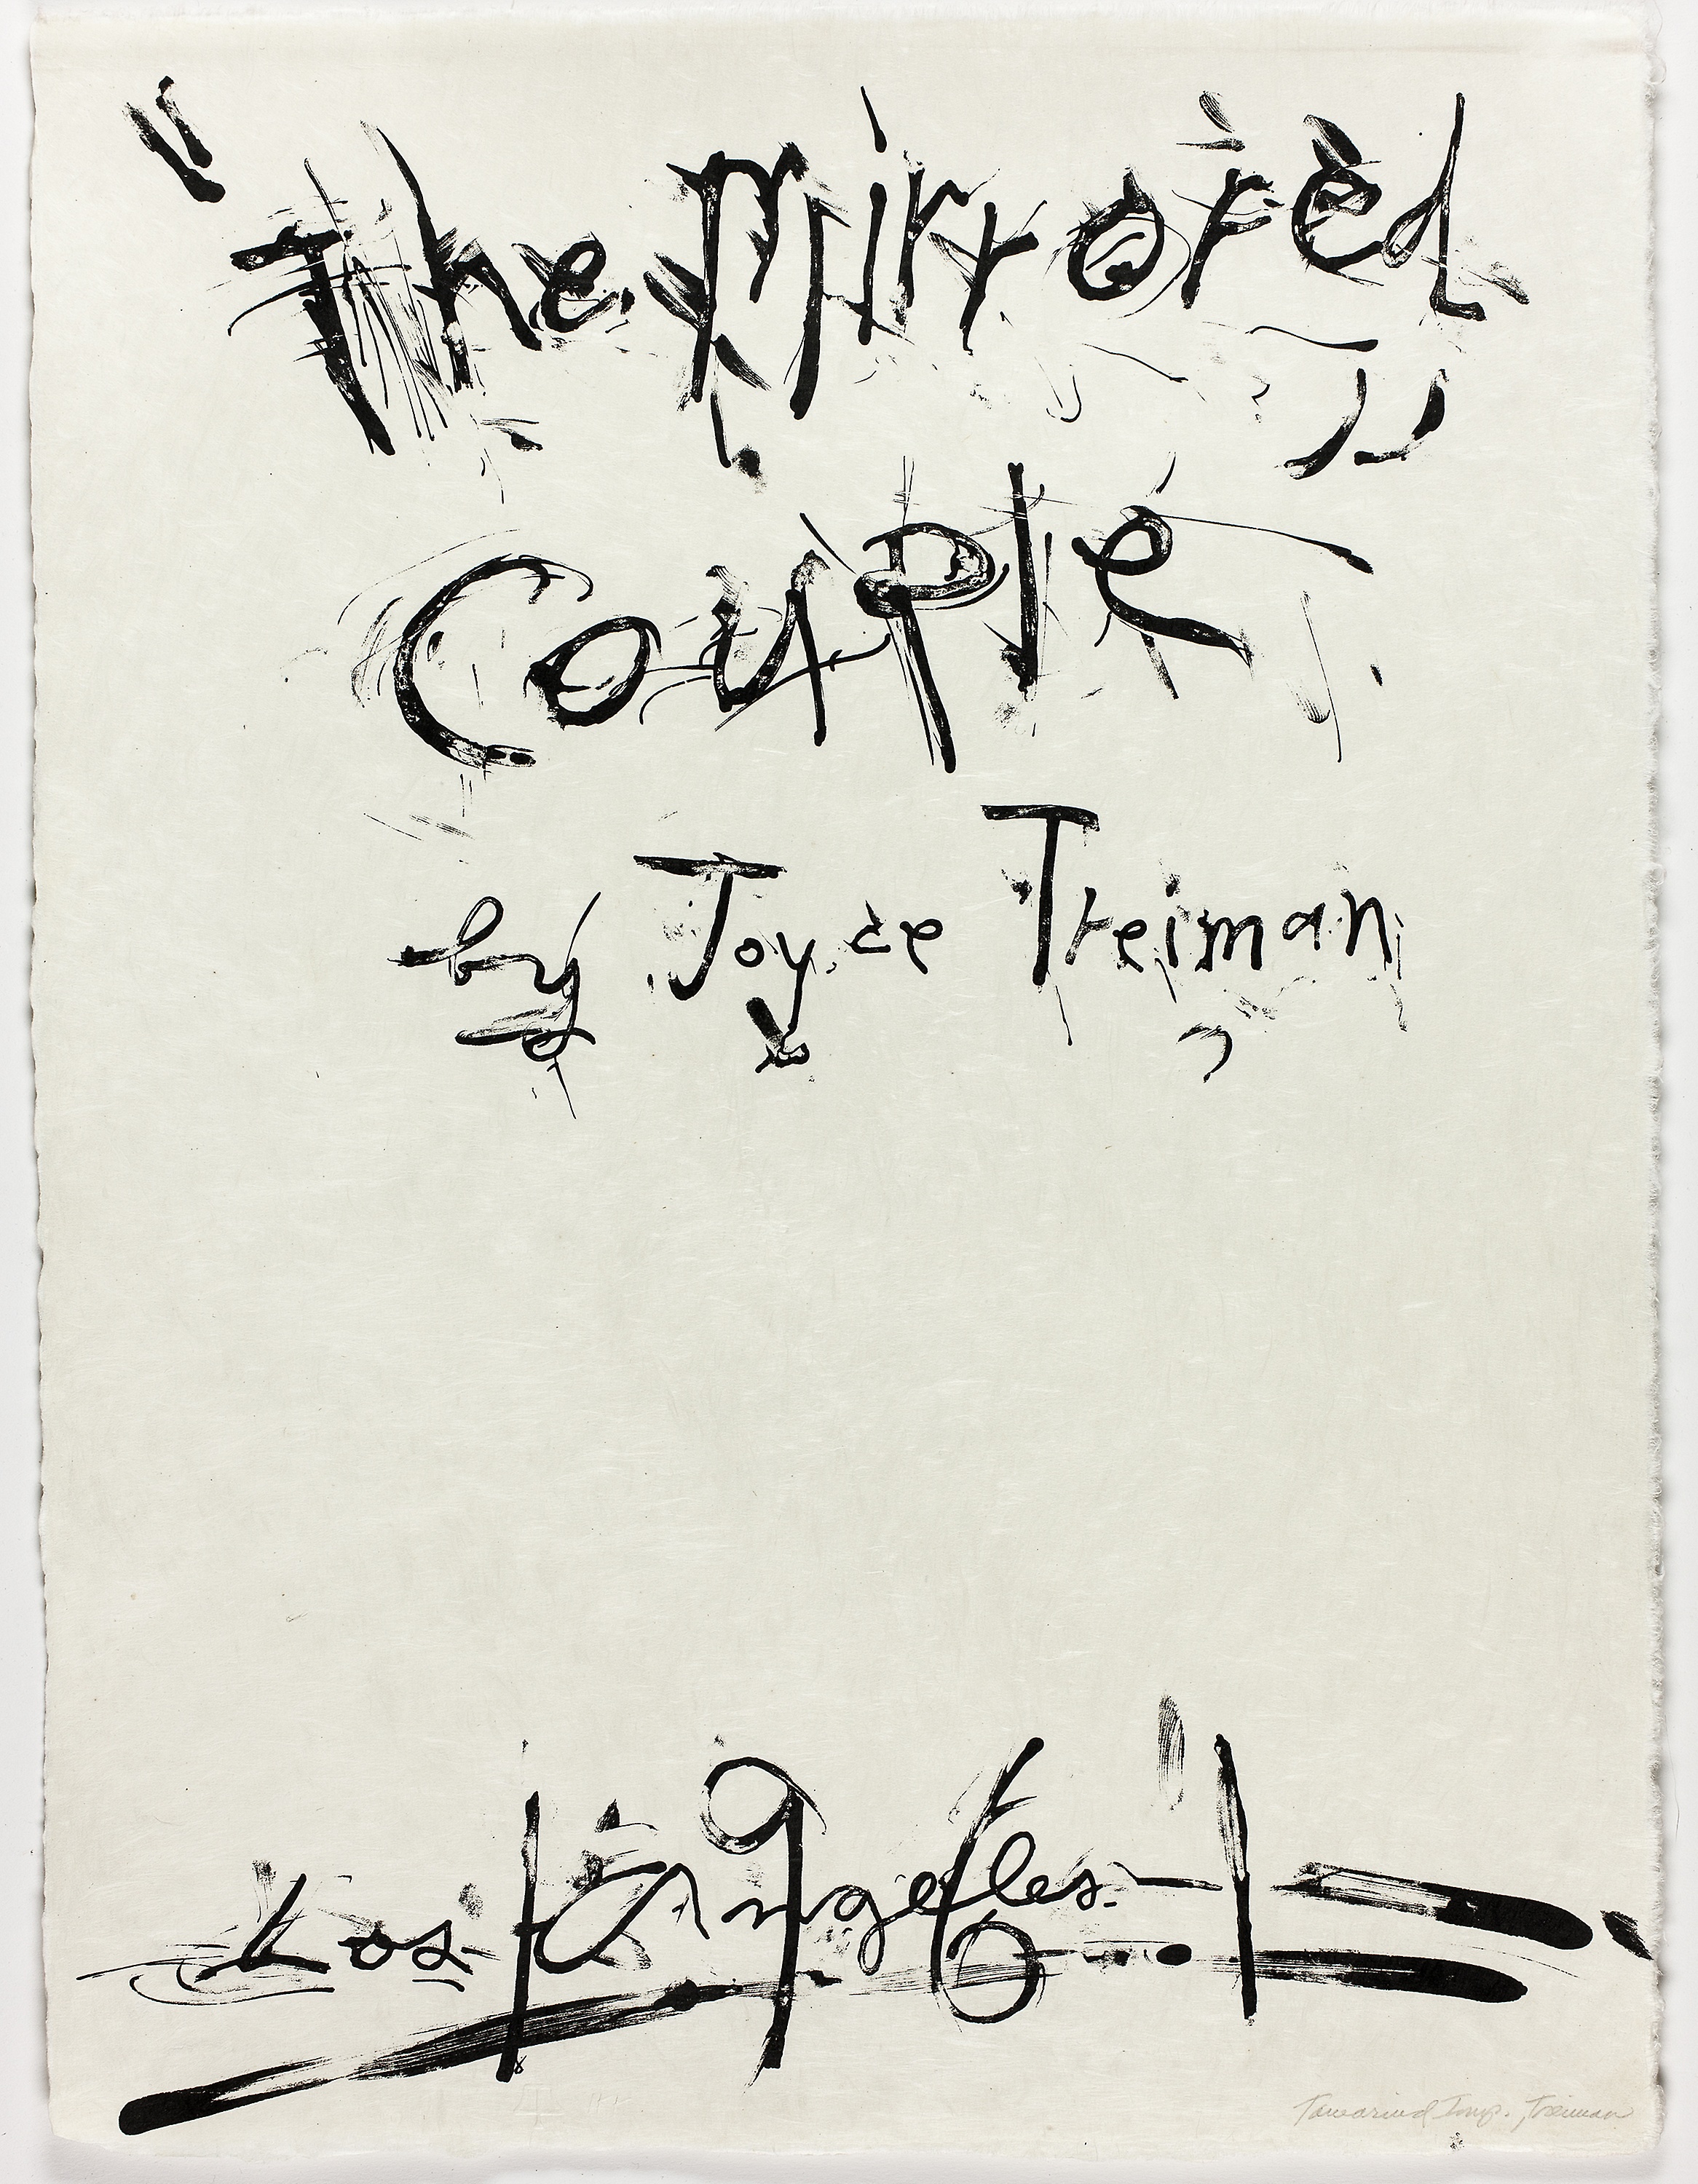 "The Mirrored
Couple"
by Joyce Treiman
Los Angeles
1961
Tamarind Imp. Treiman